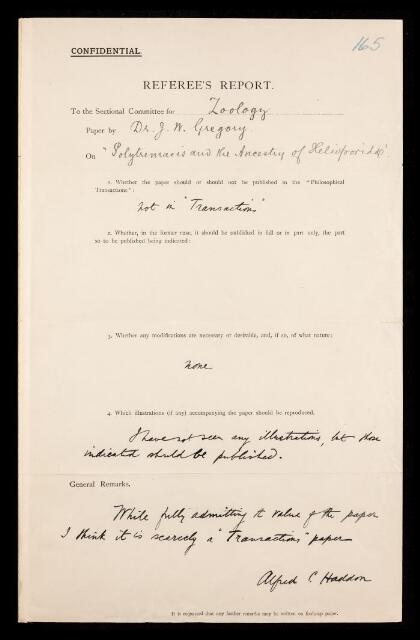 165
CONFIDENTIAL.
REFEREE'S REPORT.
To the Sectional Committee for Zoology
Paper by Dr. J. W. Gregory
On "Polytremacis and the Ancestry of Helioporidæ"
1. Whether the paper should or should not be published in the "Philosophical
Transactions":
not in "Transactions"
2. Whether, in the former case, it should be published in full or in part only, the part
so to be published being indicated:
3. Whether any modifications are necessary or desirable, and, if so, of what nature:
none
4. Which illustrations (if any) accompanying the paper should be reproduced.
I have not seen any illustrations, but those
indicated should be published.
General Remarks.
While fully admitting the value of the paper
I think it is scarcely a "Transactions" paper
Alfred C. Haddon
It is requested that any further remarks may be written on foolscap paper.